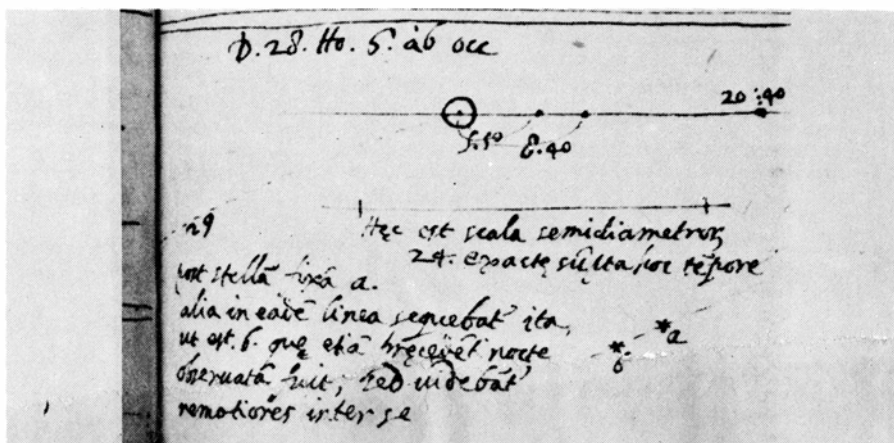 D. 28. Ho. 5. ab occ
20 : 40
5.50 8.40
Hęc est scala semidiametror
29 24. exactę sūpta hoc tēpore
post stellā fixā a.
alia in eadē linea sequebat ita,
ut est. b. quę etiā pręcedēti nocte
obseruata fuit; sed videbāt
remotiores inter se
a
b